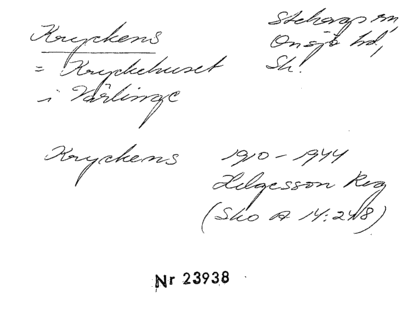 Kryckens
= Kryckehuset
i Värlinge
Stehags sn,
Onsjö hd,
Sk.
Kryckens 1910 - 1944
Helgesson Reg
(Sko A 14:248)
Nr 23938